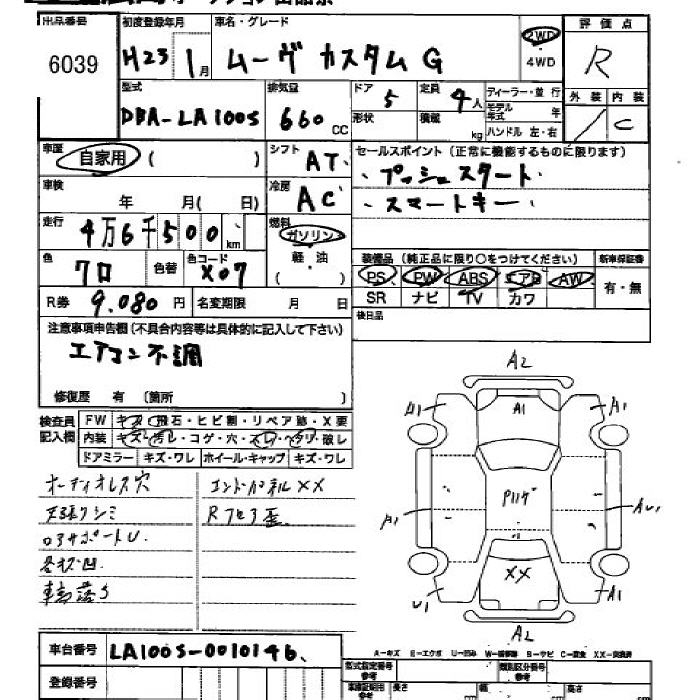 出品番号 初度登録年月 車名・グレード 評価点
6039 H23 1月 ムーヴ カスタム G 2WD 4WD R
型式 排気量 ドア 定員 ディーラー・並行 外装 内装
DBA-LA100S 660 CC 5 4人 モデル年式 年 C
形状 積載 kg ハンドル 左・右
車歴 自家用 ( ) シフト AT セールスポイント (正常に機能するものに限ります)
・プッシュスタート
車検 年 月( 日) 冷房 AC ・スマートキー
走行 4万6千500 km 燃料 ガソリン 軽・油 ( )
色 クロ 色替 色コード X07 装備品 (純正品に限り○をつけてください) 新車保証書
PS PW ABS エアB AW 有・無
R券 9,080円 名変期限 月 日 SR ナビ TV カワ
後日品
注意事項申告欄(不具合内容等は具体的に記入して下さい)
エアコン不調
修復歴 有 (箇所 )
検査員記入欄 FW キズ・飛石・ヒビ割・リペア跡・X要
内装 キズ・汚レ・コゲ・穴・スレ・ヘタリ・破レ
ドアミラー キズ・ワレ ホイール・キャップ キズ・ワレ
オーディオレス穴 エンドパネルXX
天張りシミ Rフロア歪
ロアサポートU
各状凹
A2
A1 A1 A1
A1 AU1
XX
U1 A1
A2
車台番号 LA100S-0010146
A-キズ E-エクボ U-凹み
登録番号
型式指定番号 類別区分番号
参考 参考
長さ 幅 高さ